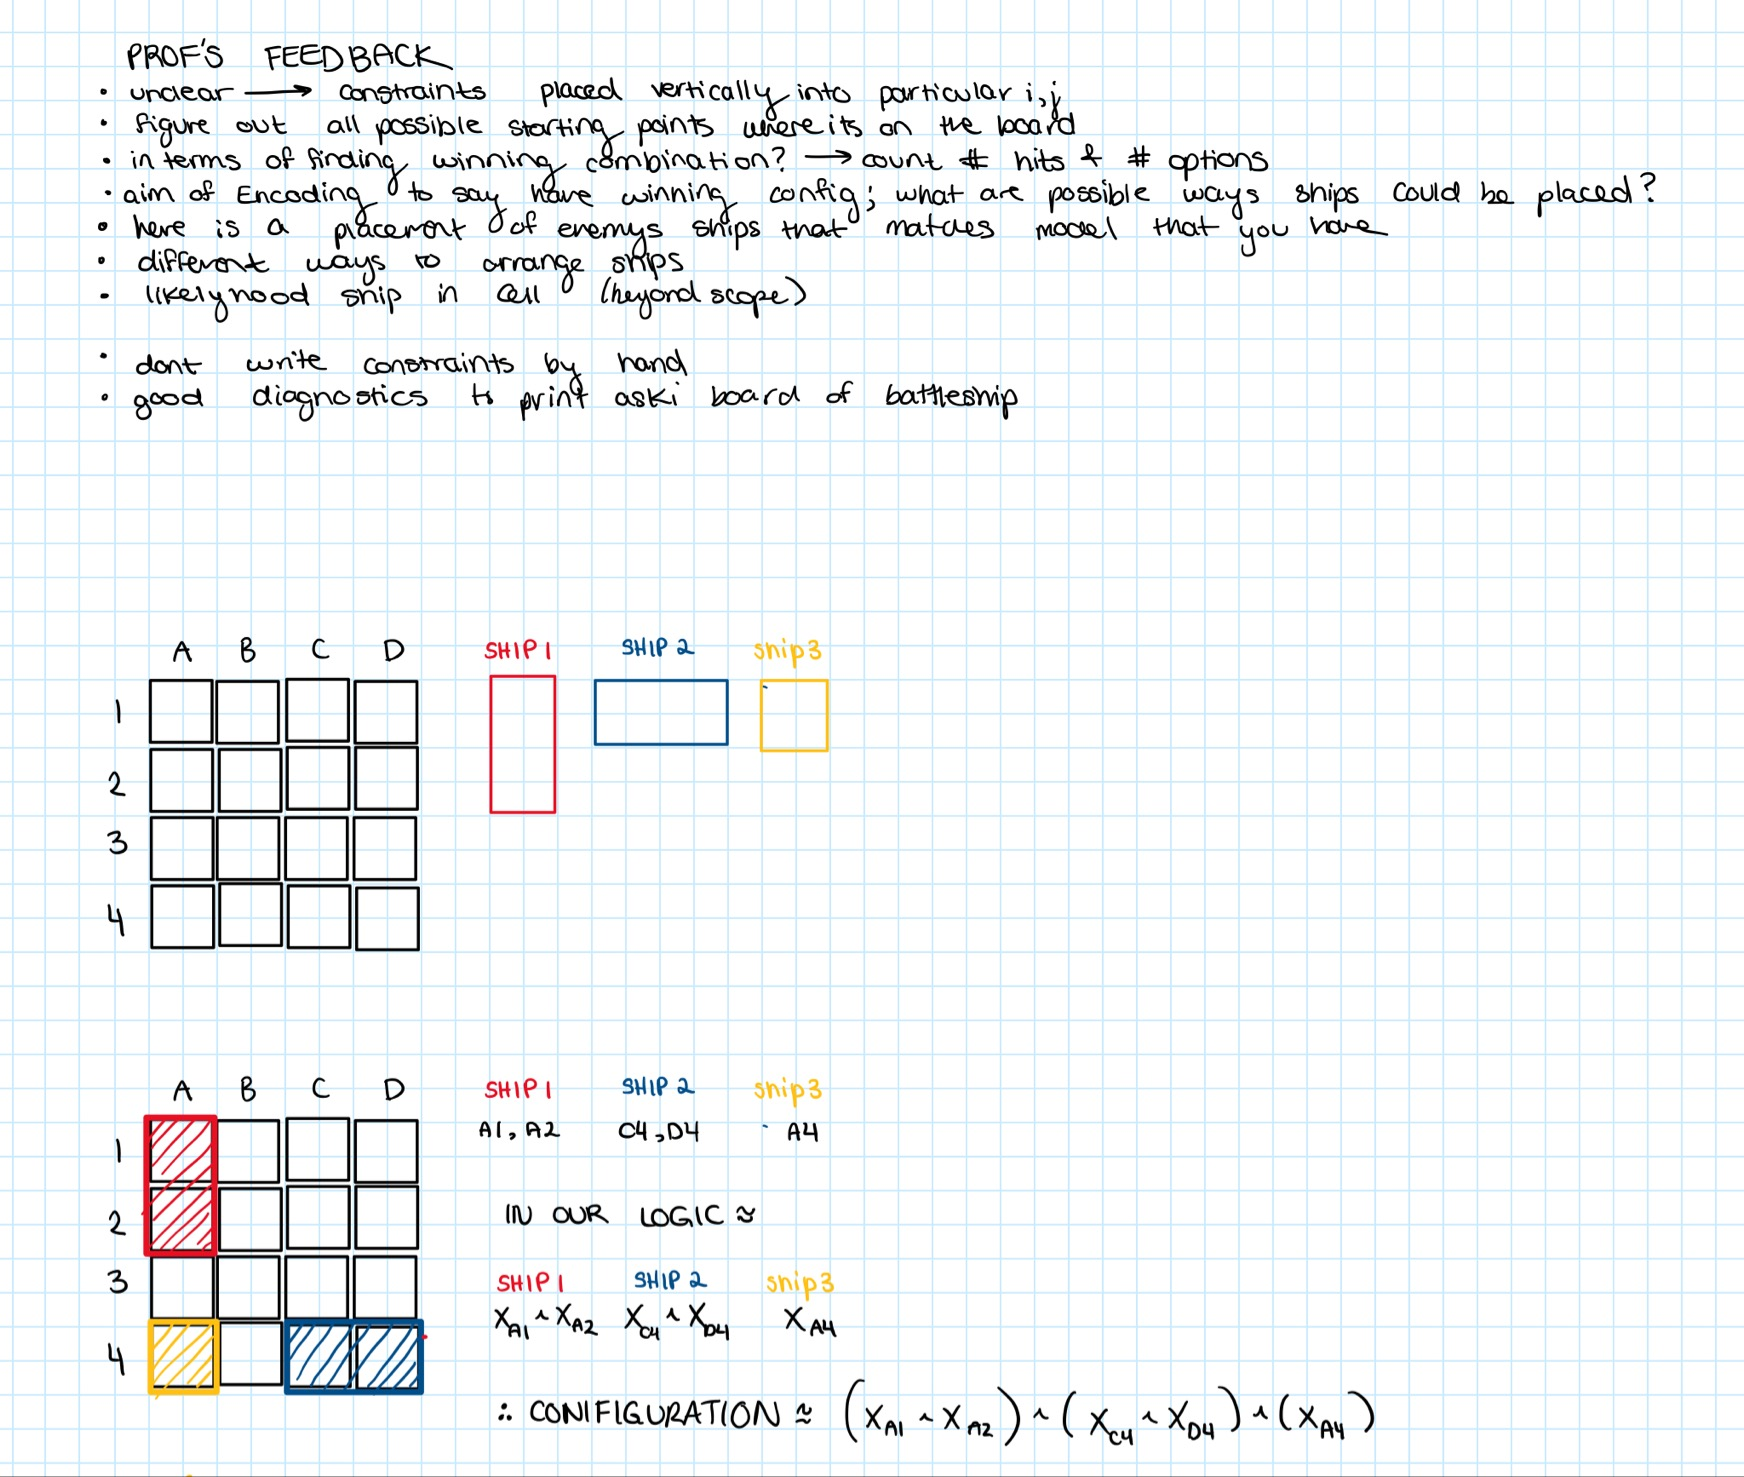 PROF'S FEEDBACK
• unclear → constraints placed vertically into particular i,j
• figure out all possible starting points where its on the board
• in terms of finding winning combination? → count # hits & # options
• aim of Encoding to say have winning config; what are possible ways ships could be placed?
• here is a placement of enemys ships that matches model that you have
• different ways to arrange ships
• likelyhood ship in cell (beyond scope)
• dont write constraints by hand
• good diagnostics to print aski board of battleship
A B C D SHIP 1 SHIP 2 ship 3
1
2
3
4
A B C D SHIP 1 SHIP 2 ship 3
1 A1, A2 C4, D4 A4
2 IN OUR LOGIC ≈
3 SHIP 1 SHIP 2 ship 3
X_A1 ∧ X_A2 X_C4 ∧ X_D4 X_A4
4
∴ CONIFIGURATION ≈ (X_A1 ∧ X_A2) ∧ (X_C4 ∧ X_D4) ∧ (X_A4)